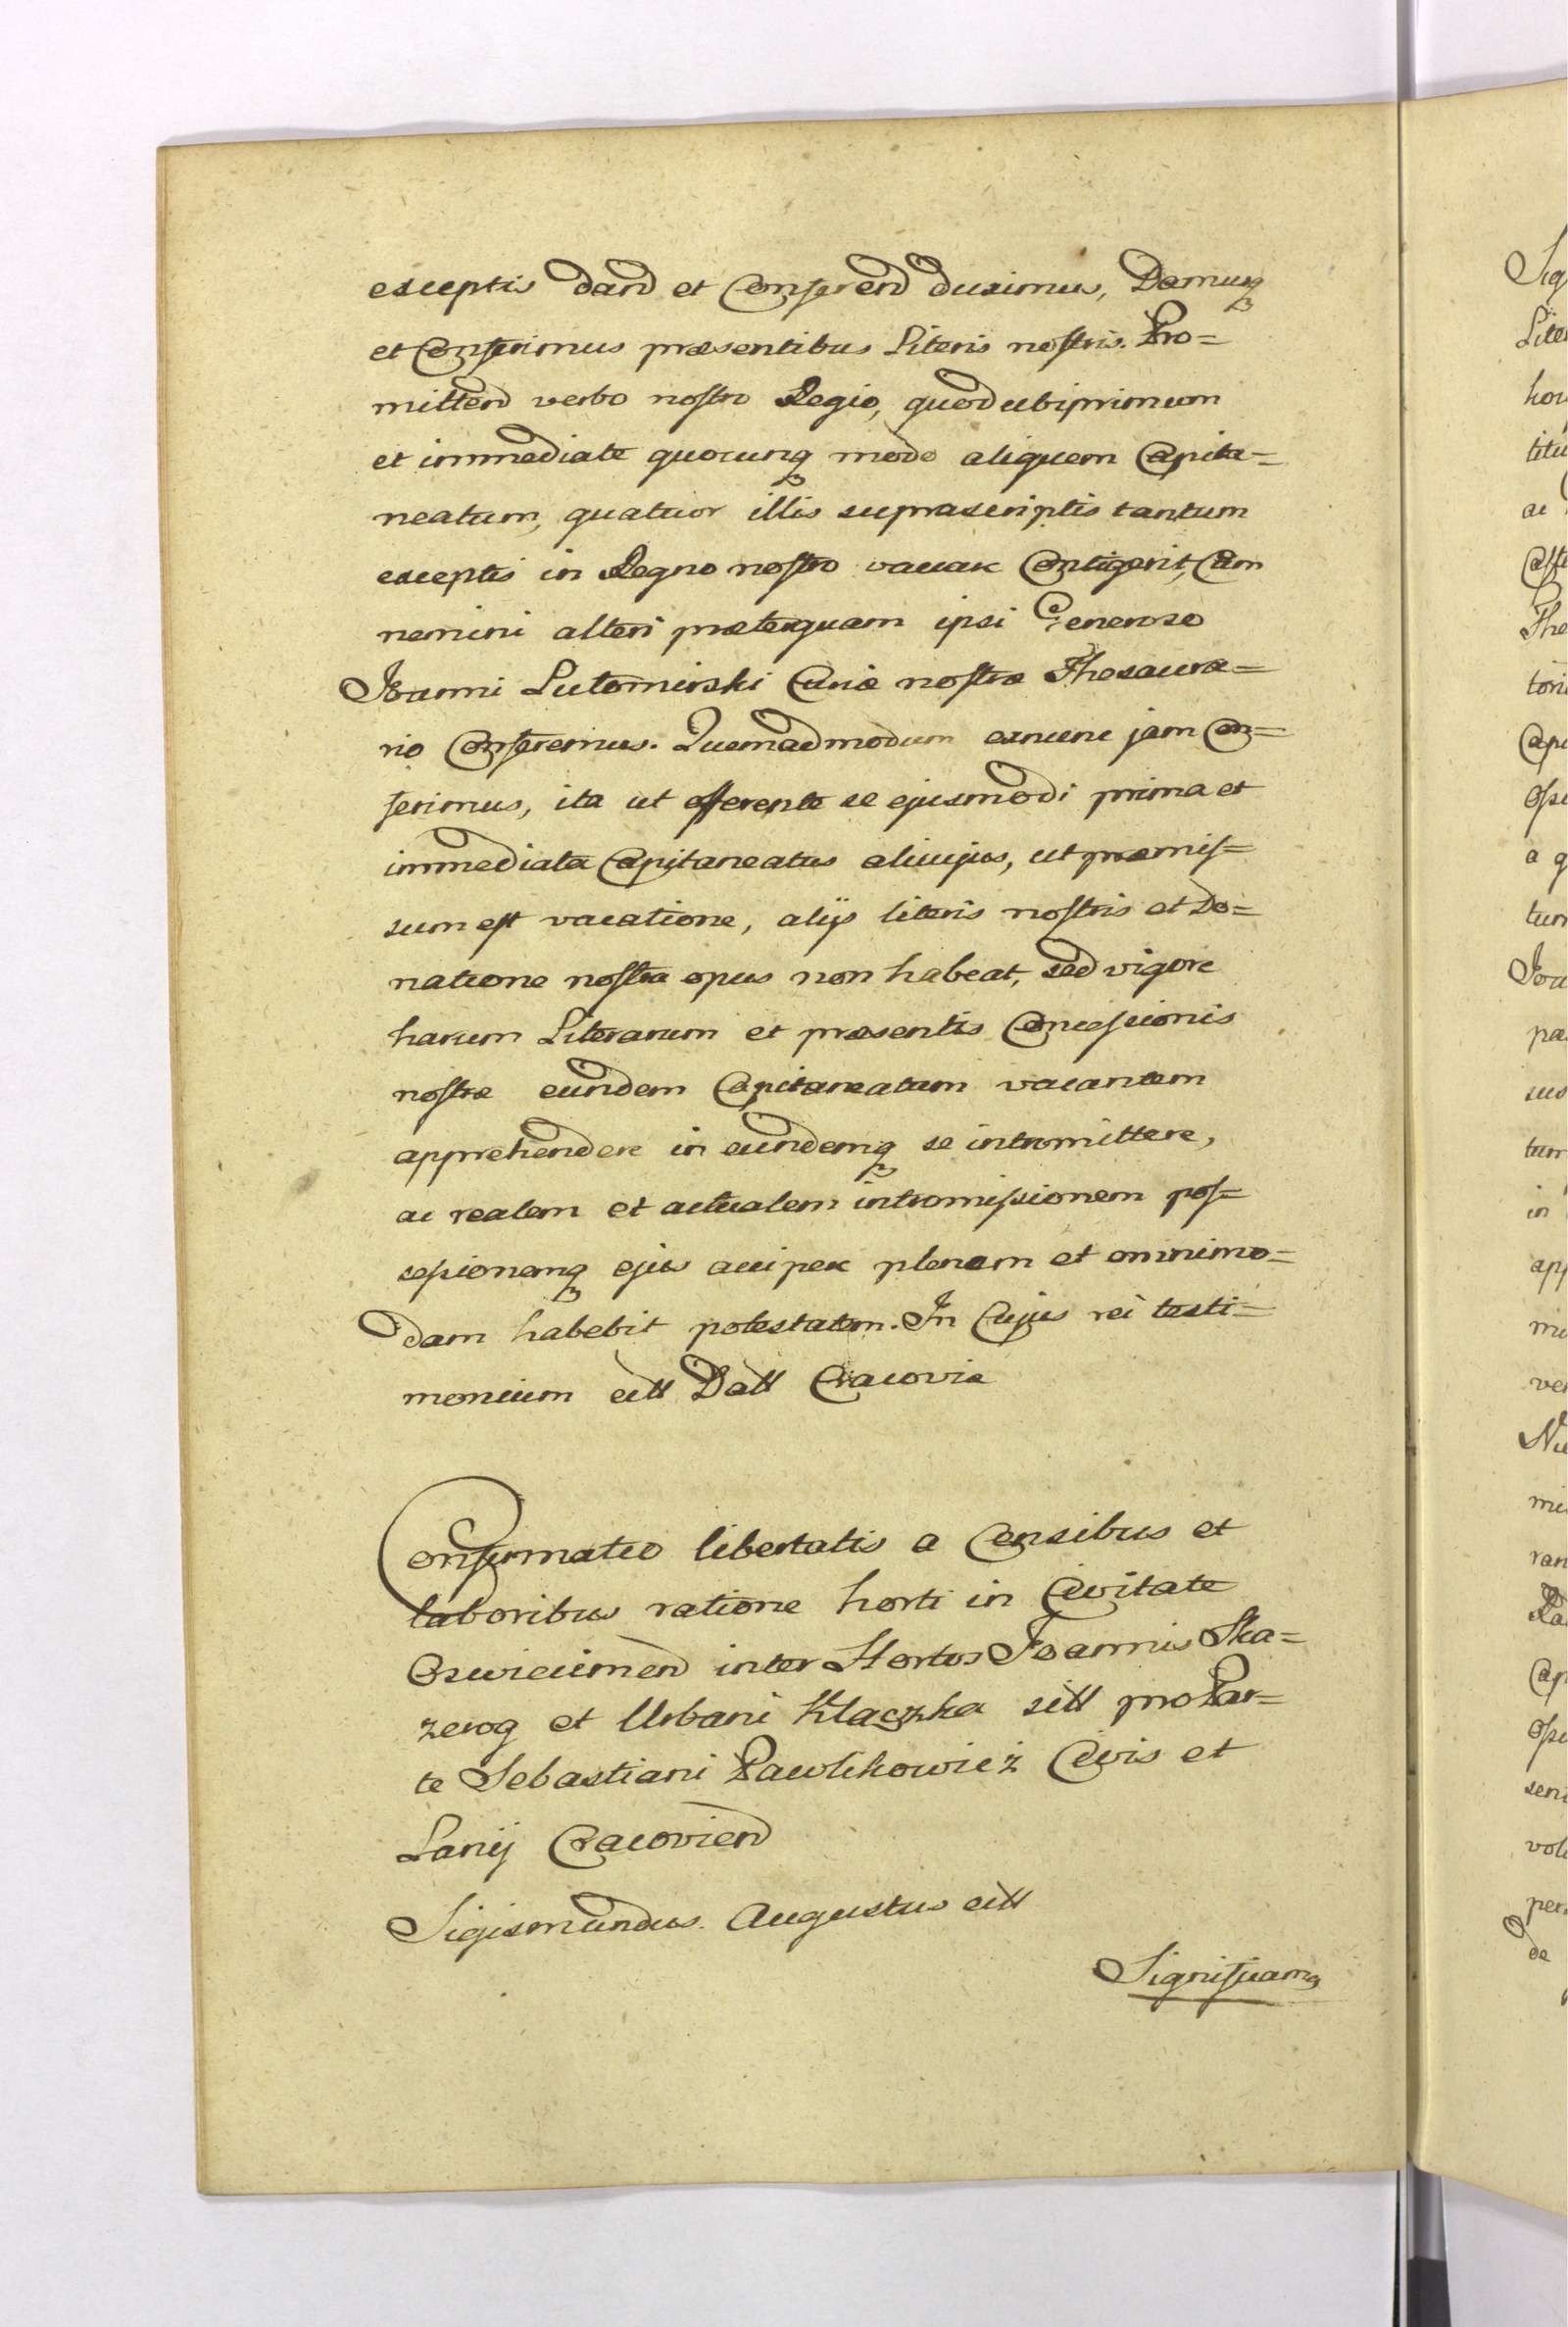 exceptis dand et Conferend duximus, Damusq
et Conferimus præsentibus Literis nostris. Pro=
mittend verbo nostro Regio, quod ubiprimum
et immediate quocunq modo aliquem Capita=
neatum, quatuor illis suprascriptis tantum
exceptis in Regno nostro vacare Contigerit, Eum
nemini alteri præterquam ipsi Generoso
Joanni Lutomirski Curiæ nostræ Thesaura=
rio Conferemus. Quemadmodum exnunc jam Con=
ferimus, ita ut offerente se ejusmodi prima et
immediata Capitaneatus alicujus, ut præmis=
sum est vacatione, alijs literis nostris et Do=
natione nostra opus non habeat, sed vigore
harum Literarum et præsentis Concessionis
nostræ eundem Capitaneatum vacantem
apprehendere in eundemq se intromittere,
ac realem et actualem intromissionem pos=
sessionemq ejus accipere plenam et omnimo=
dam habebit potestatem. In Cujus rei testi=
monium ett Datt Cracoviæ
Confirmatio libertatis a Censibus et
laboribus ratione horti in Civitate
Oswiecimen inter Hortos Joannis Ska=
zerog et Urbani Klaczka sitt pro Par=
te Sebastiani Pawlikowicz Civis et
Lanij Cracovien
Sigismundus Augustus ett
Significamq
Sig
Liter
hor
titu
ac
Caste
The
tori
Capi
a q
tum
Joa
pa
suo
tum
in
app
mi
ver
Nu
mi
ran
Ra
Cap
seni
vol
per
de